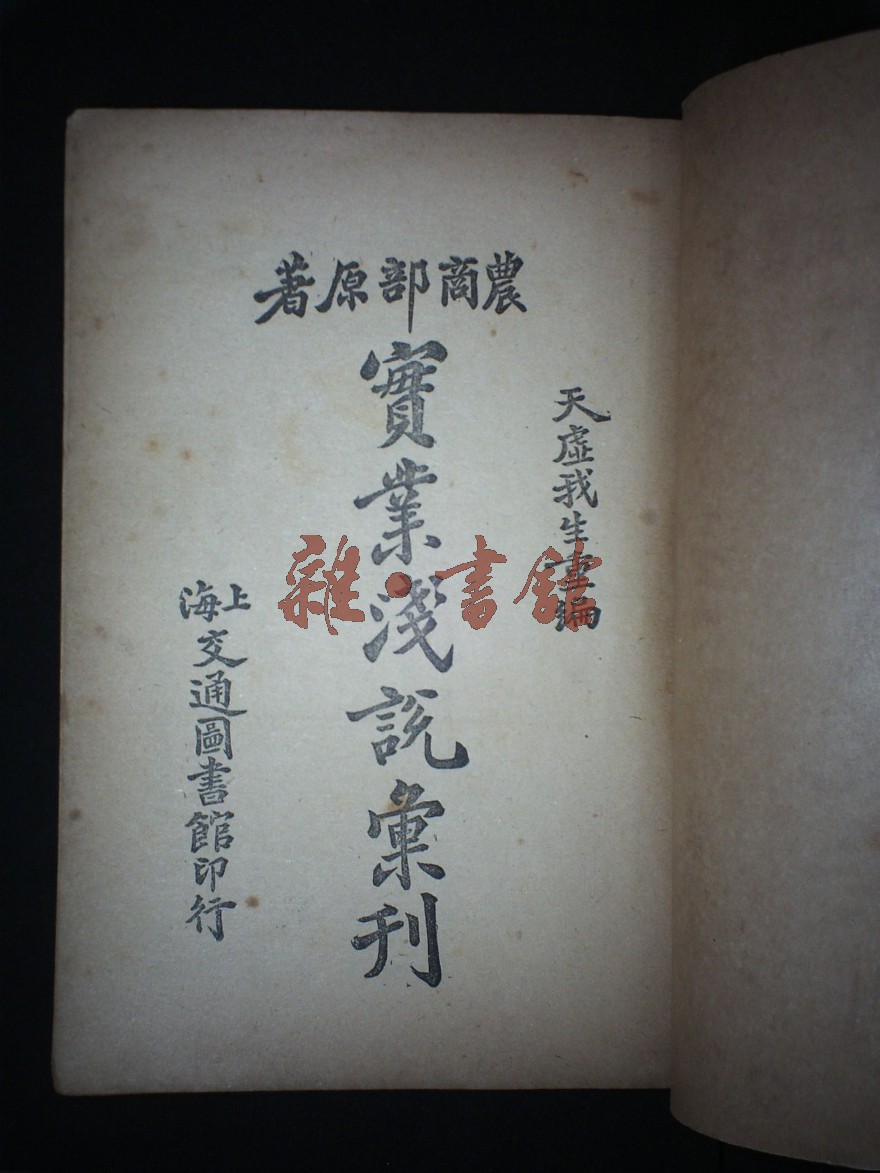 農商部原著
天虛我生重編
實業淺說彙刊
上海交通圖書館印行
雜·書館